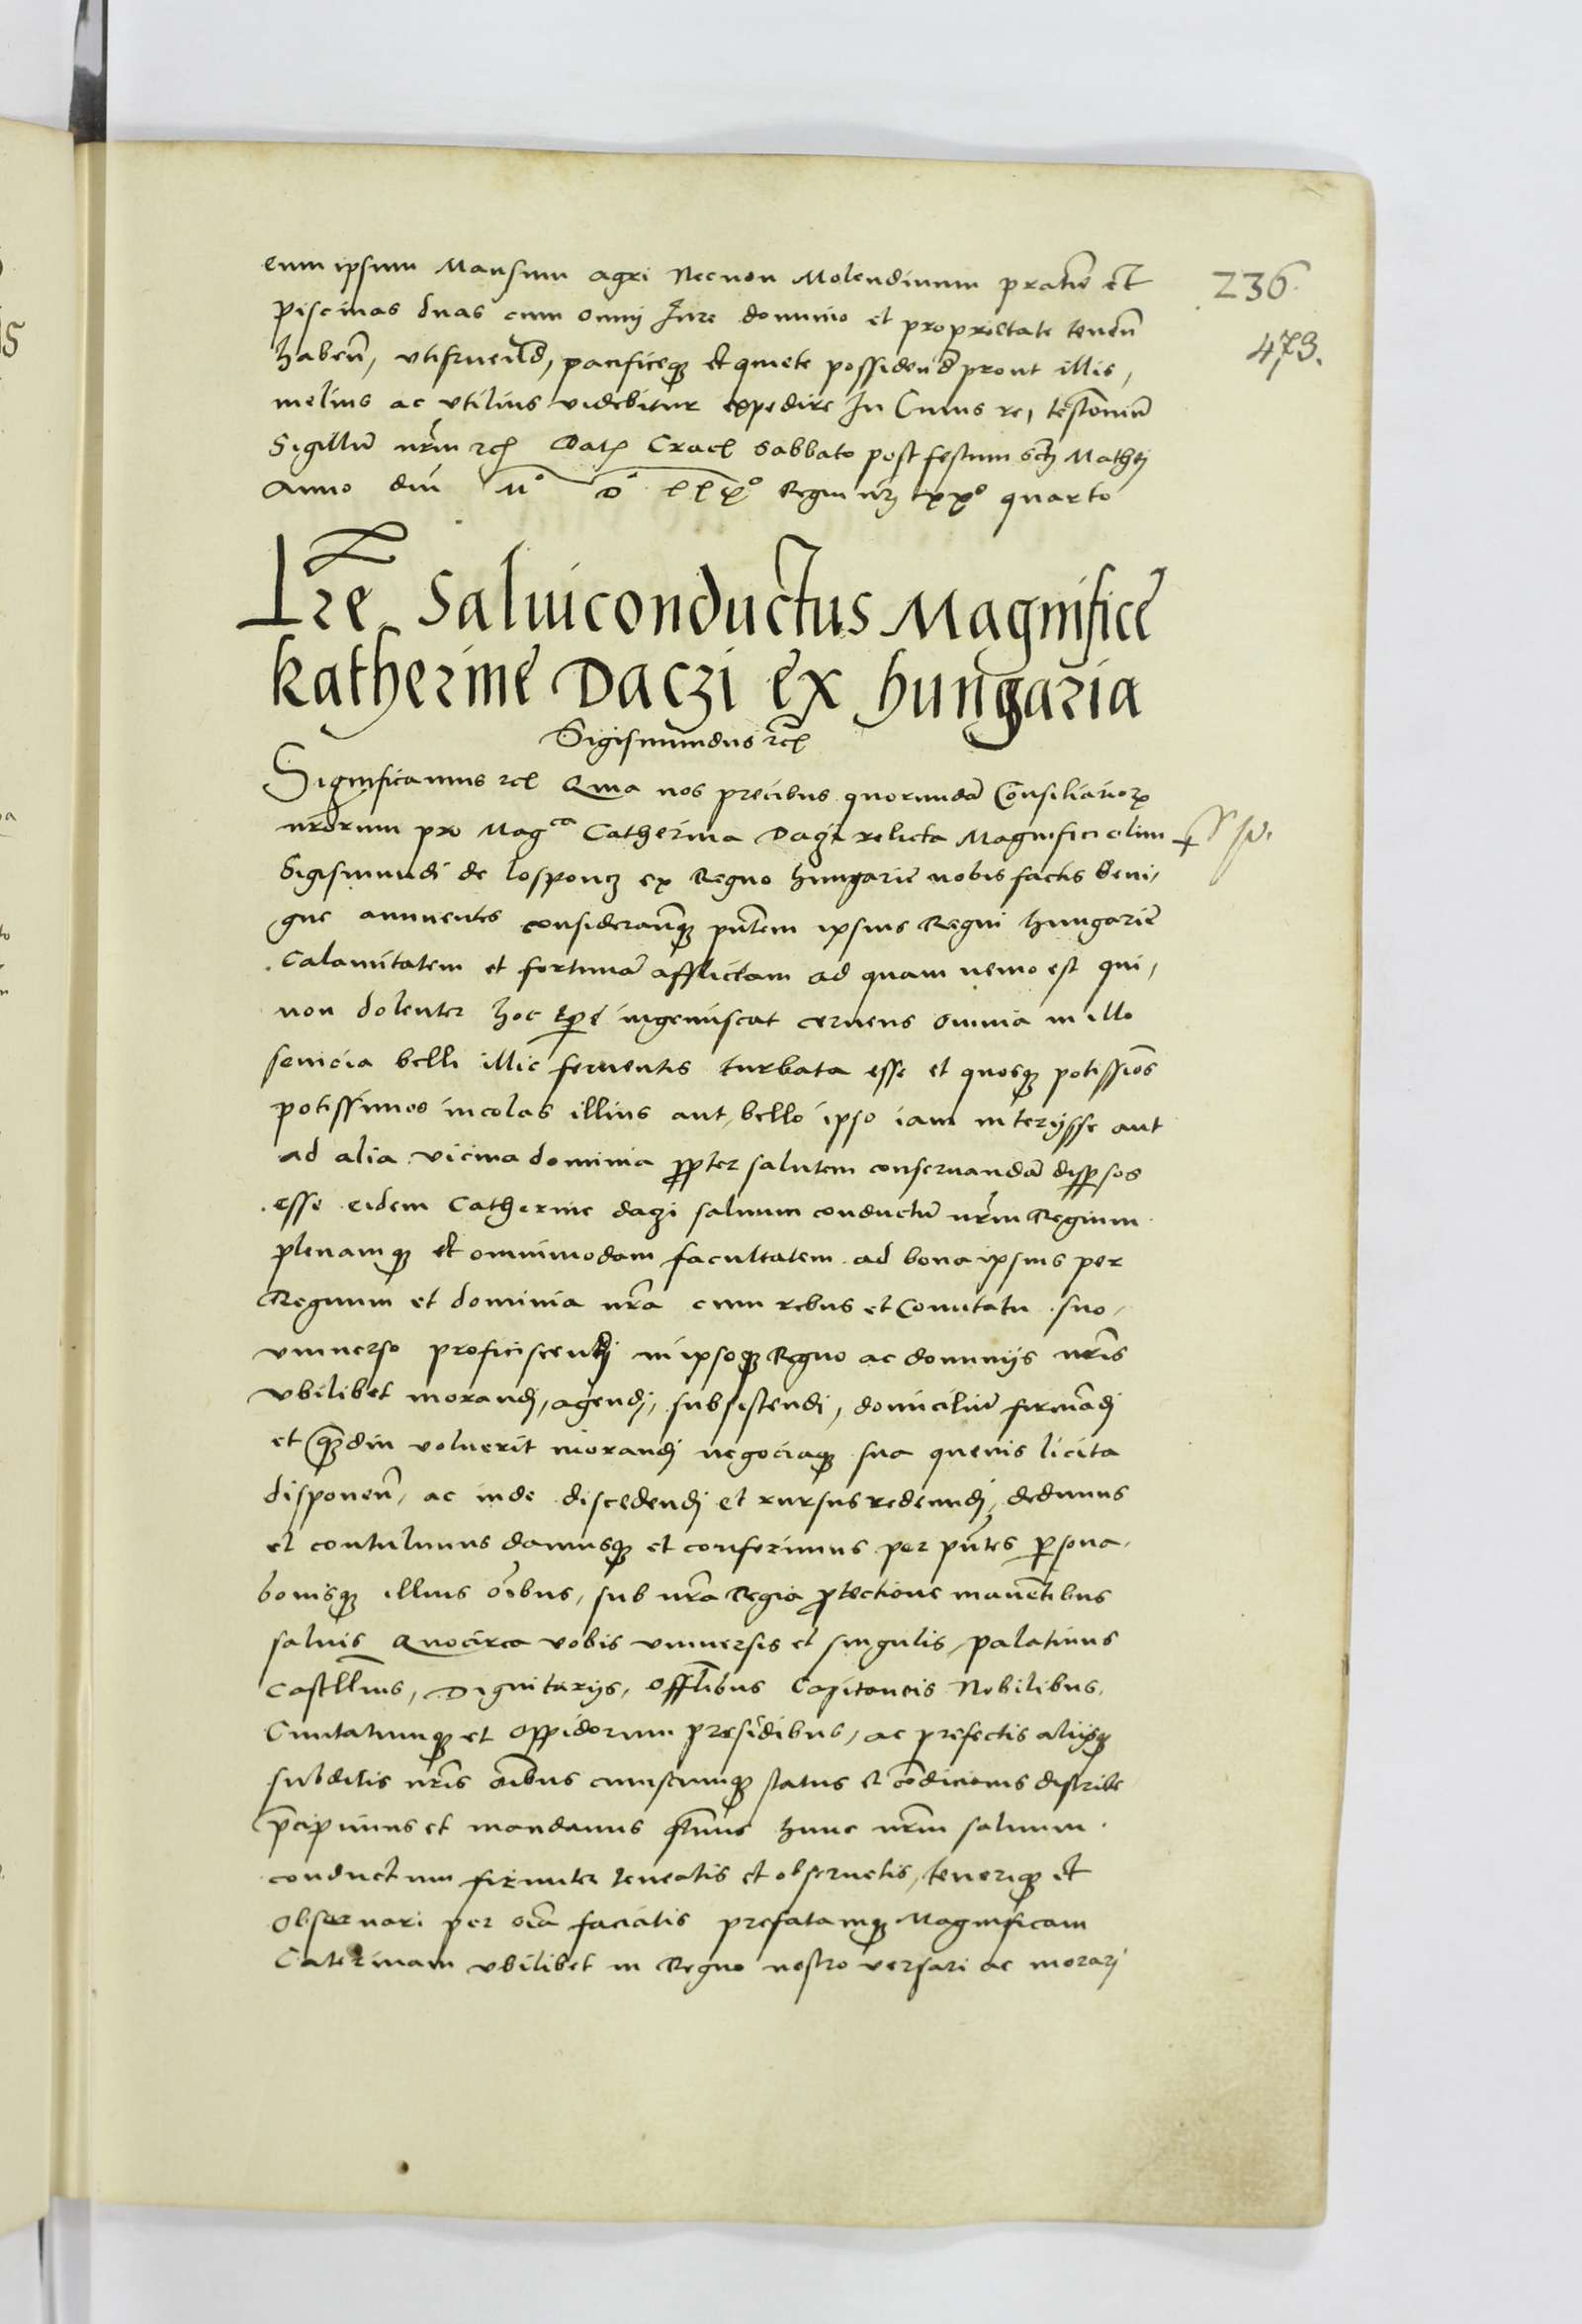 eum ipsum Mansum agri Necnon Molendinum pratum et
piscinas duas cum omnj Jure dominio et proprietate tenen̄
haben̄, vtifruend, pacificeq; et quiete possidend prout illis,
melius ac vtilius videbitur expedire In Cuius rei testimoniū
Sigillū nr̄m rcȷ Datȷ Cracȷ Sabbato post festum sctȷ Mathei
Anno dnī Mº Dº xxxº Regni nrȷ xxº quarto
Lr̄e Saluiconductus Magnifice
katherine Daczi ex hungaria
Sigismundus rcȷ
Significamus rcȷ Quia nos precibus quorundā Consiliariorꝫ
nr̄orum pro Magca Catherina Daczi relicta Magnifici olim
Sigismundi de losponcz ex Regno hungarie nobis factis beni,
gne annuentes considerantesq; pn̄tem ipsius Regni hungarie
Calamitatem et fortunā afflictam ad quam nemo est qui,
non dolenter hoc tp̄e ingemiscat cernens omnia in illo
seuicia belli illic feruentis turbata esse et quosq; potissimos
potissimos incolas illius aut bello ipso iam interijsse aut
ad alia vicina dominia ꝓpter salutem conseruandā disꝑsos
esse eidem Catherine daczi saluum conductū nr̄m Regium
plenamq; et omnimodam facultatem ad bona ipsius per
Regnum et dominia nr̄a cum rebus et Comitatu suo,
vniuerso proficiscendj in ipsoq; Regno ac dominijs nr̄is
vbilibet morandj, agendj, subsistendi, domiciliū firmādj
et quādiu voluerit morandj negociaq; sua queuis licita
disponen̄, ac inde discedendj et rursus redeundj, dedimus
et contulimus damusq; et conferimus per pn̄tes ꝑsona
bonisq; illius oībus, sub nr̄a Regia ꝓtectione manētibus
saluis Quocirca vobis vniuersis et singulis, palatinis
Castelln̄is, Dignitarijs, Offtlibus Capitaneis Nobilibus,
Ciuitatumq; et Oppidorum presidibus, ac prefectis alijsq;
subditis nr̄is oībus cuiuscumq; status et cōdicionis distribē
p̄cipimus et mandamus qt̄nus hunc nr̄m saluum
conductum firmiter teneatis et obseruetis, teneriq; et
obseruari per oīa faciatis prefatamq; Magnificam
Caterinam vbilibet in Regno nostro versari ac morarj
236.
473.